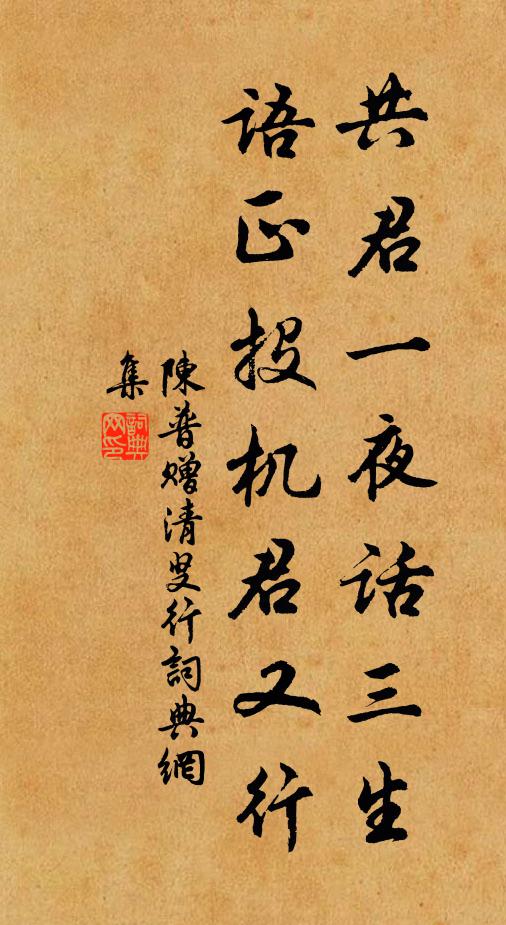 共君一夜话三生
语正投机君又行
陳普赠清叟行詞典網
集
詞典
网印